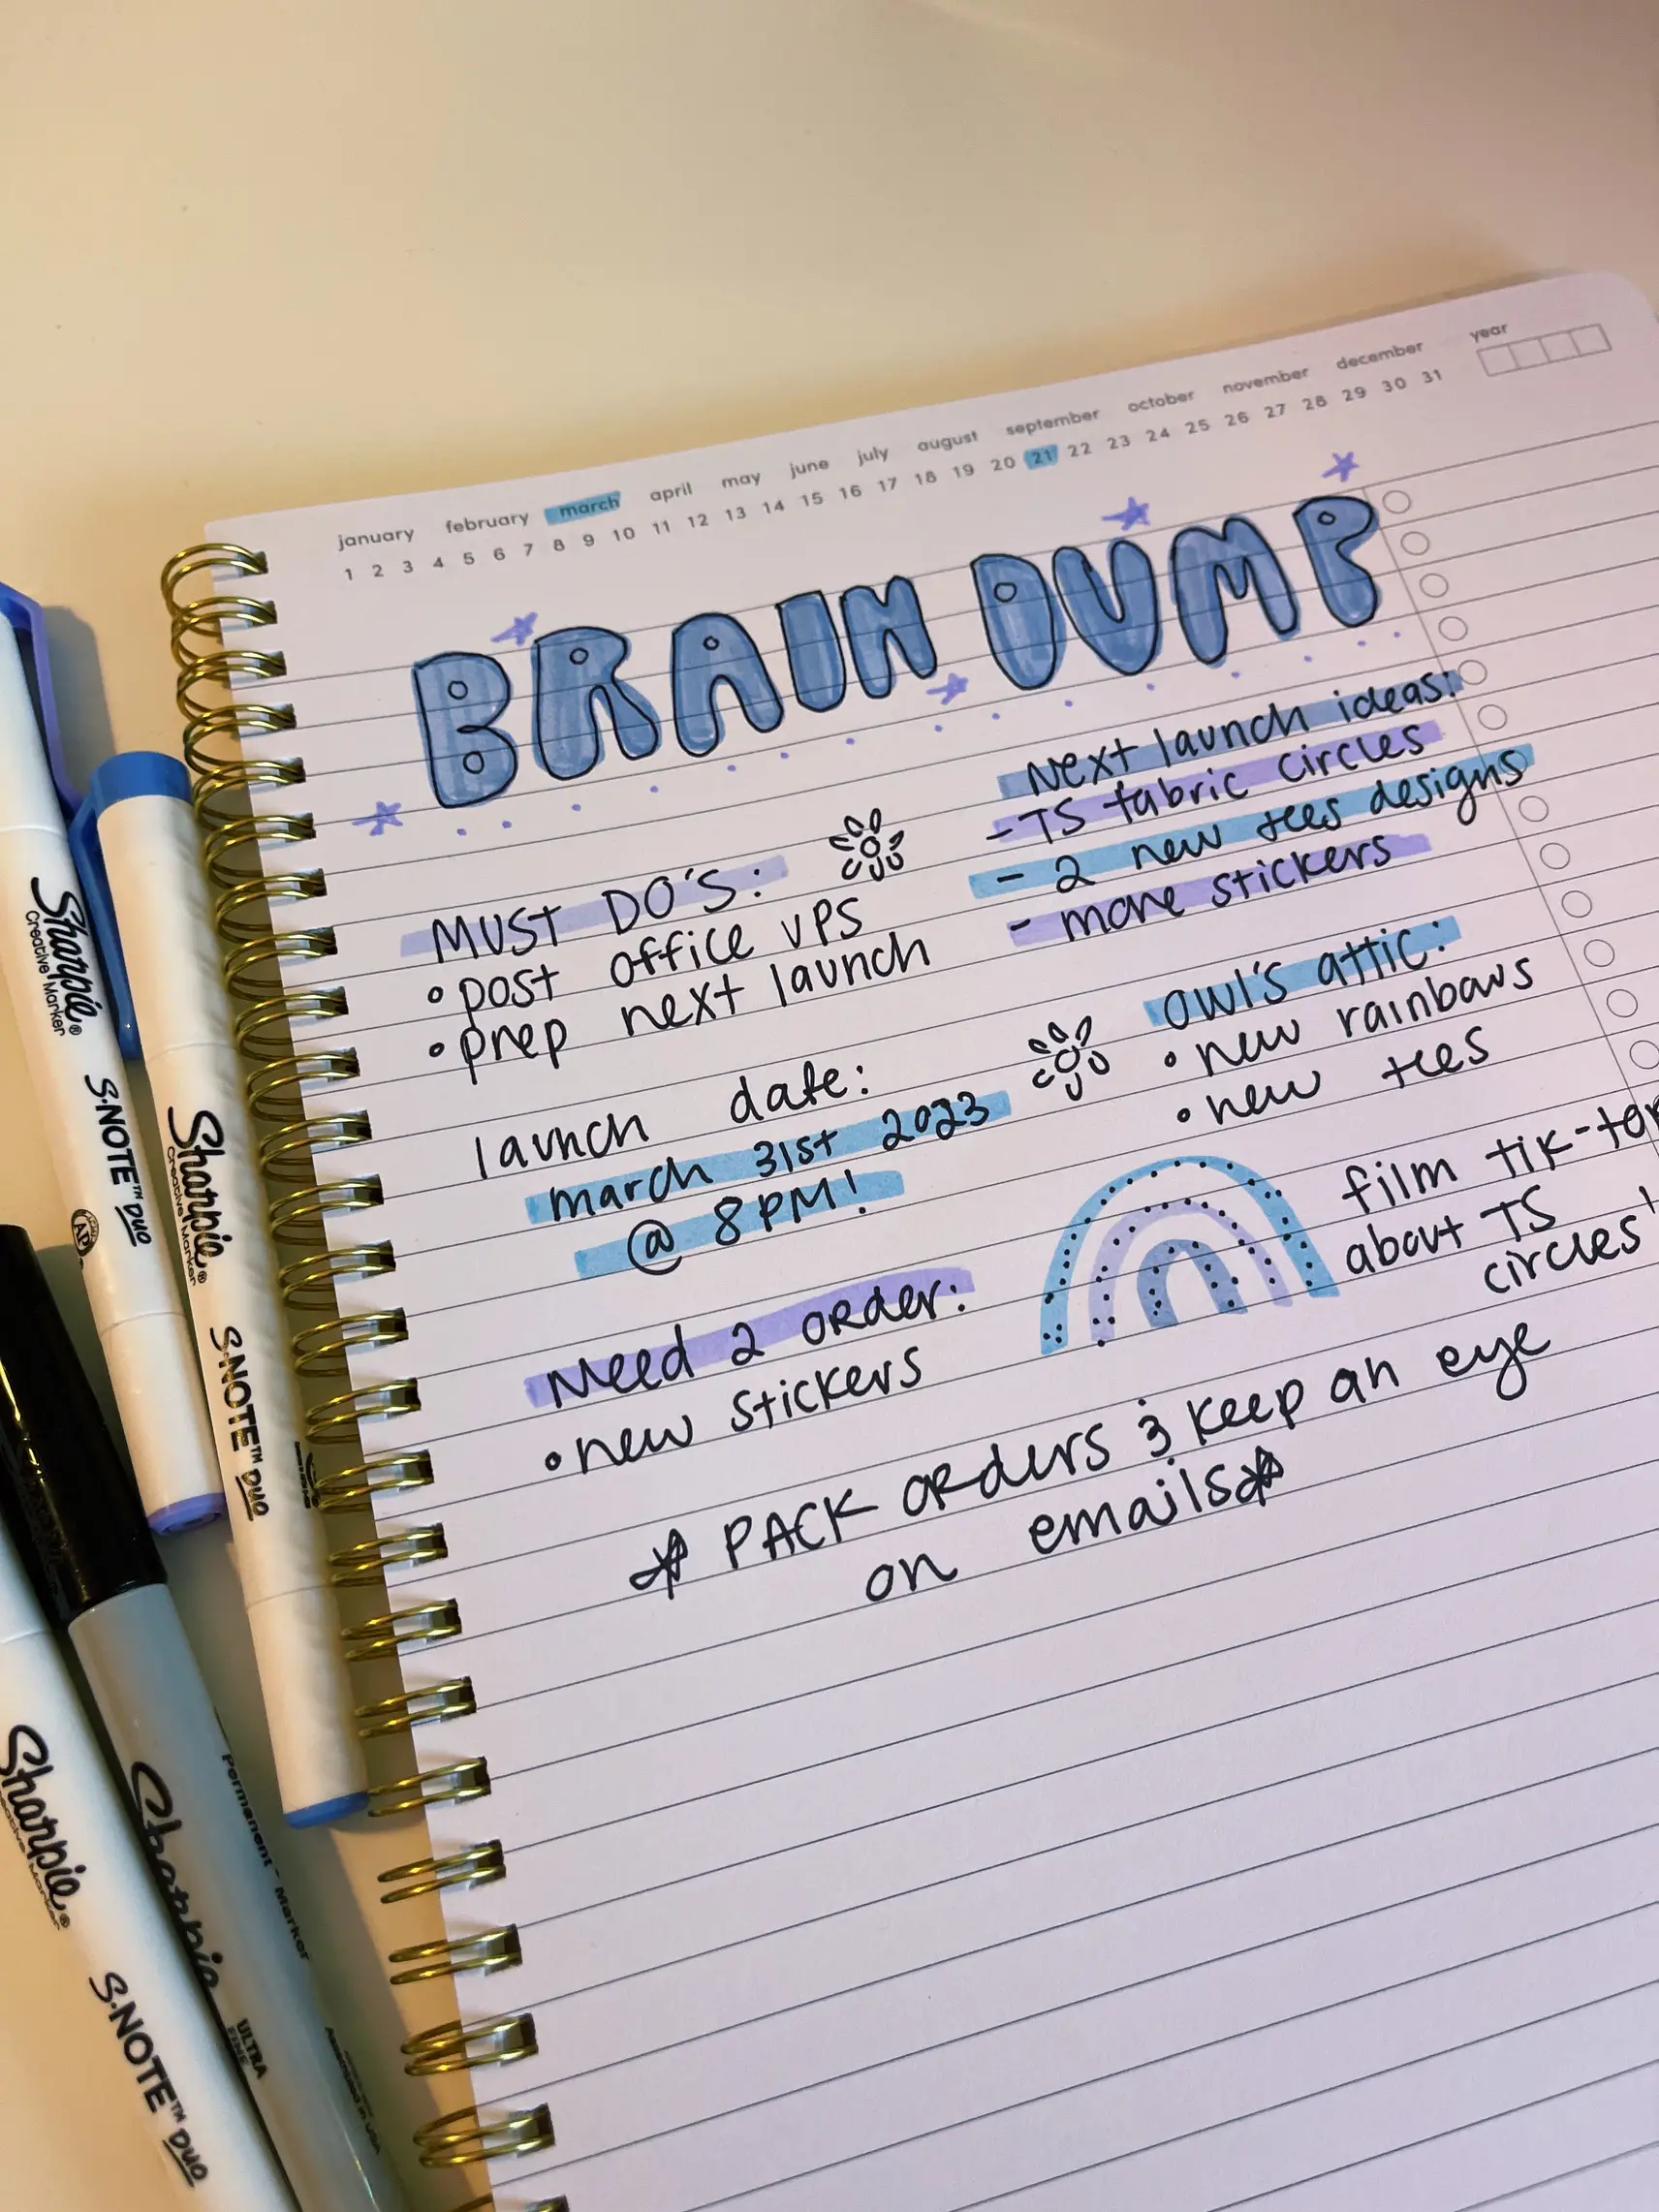 january february march april may june july august september october november december year
1 2 3 4 5 6 7 8 9 10 11 12 13 14 15 16 17 18 19 20 21 22 23 24 25 26 27 28 29 30 31
BRAIN DUMP
MUST DO'S:
• post office UPS
• prep next launch
launch date:
march 31st 2023
@ 8PM!
Need 2 order:
• new stickers
Next launch ideas:
- TS fabric circles
- 2 new tees designs
- more stickers
owl's attic:
• new rainbows
• new tees
film tik-
about TS
circles
* PACK ORders & keep an eye
on emails*
Sharpie®
Creative Marker
S·NOTE™ DUO
AP
Sharpie®
Creative Marker
S·NOTE™ DUO
Sharpie
Permanent - Marker
ULTRA
FINE
Sharpie®
Creative Marker
S·NOTE™ DUO